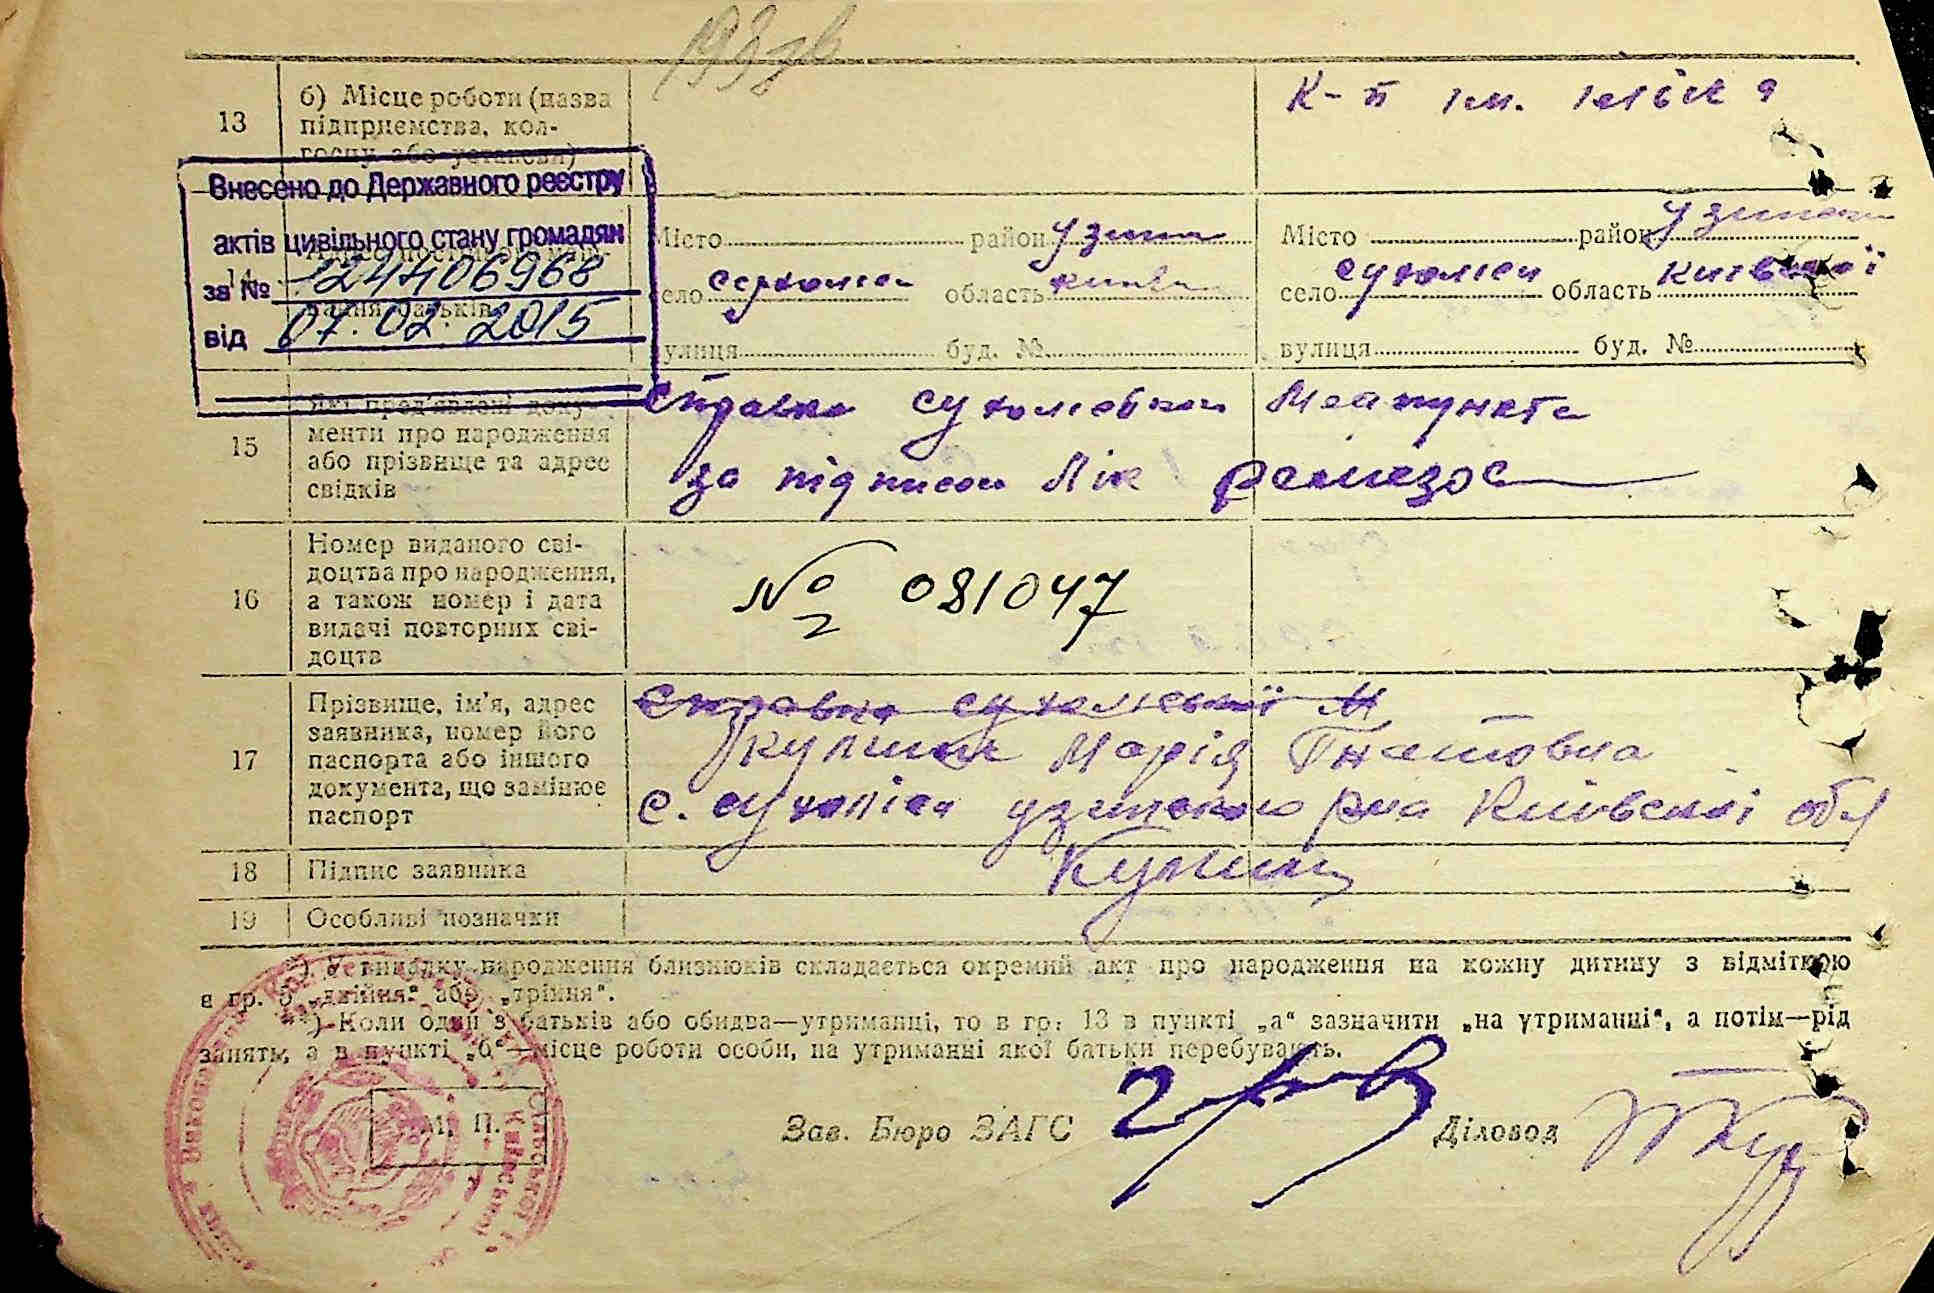 13
б) Місце роботи (назва
підприємства, кол-
госпу або установи)
К-п ім.
Внесено до Державного реєстру
актів цивільного стану громадян
за № 124406968
від 07.02.2015
14
Місто район Узин
село Сухоліси область Київ
вулиця буд. №
Місто район Узин
село Сухоліси область Київської
вулиця буд. №
15
Які пред'явлені доку-
менти про народження
або прізвище та адрес
свідків
Справка Сухоліської Медпункта
за підписом Лік
16
Номер виданого сві-
доцтва про народження,
а також номер і дата
видачі повторних сві-
доцтв
№ 081047
17
Прізвище, ім'я, адрес
заявника, номер його
паспорта або іншого
документа, що замінює
паспорт
Справка Сухоліської М
Марія Гнатовна
с. Сухоліси Узинського р-на Київської обл
18
Підпис заявника
19
Особливі позначки
*) У випадку народження близнюків складається окремий акт про народження на кожну дитину з відміткою
в гр. 5 „двійня“ або „трійня“.
**) Коли один з батьків або обидва—утриманці, то в гр. 13 в пункті „а“ зазначити „на утриманні“, а потім—рід
занять, а в пункті „б“—місце роботи особи, на утриманні якої батьки перебувають.
М. П.
Зав. Бюро ЗАГС
Діловод